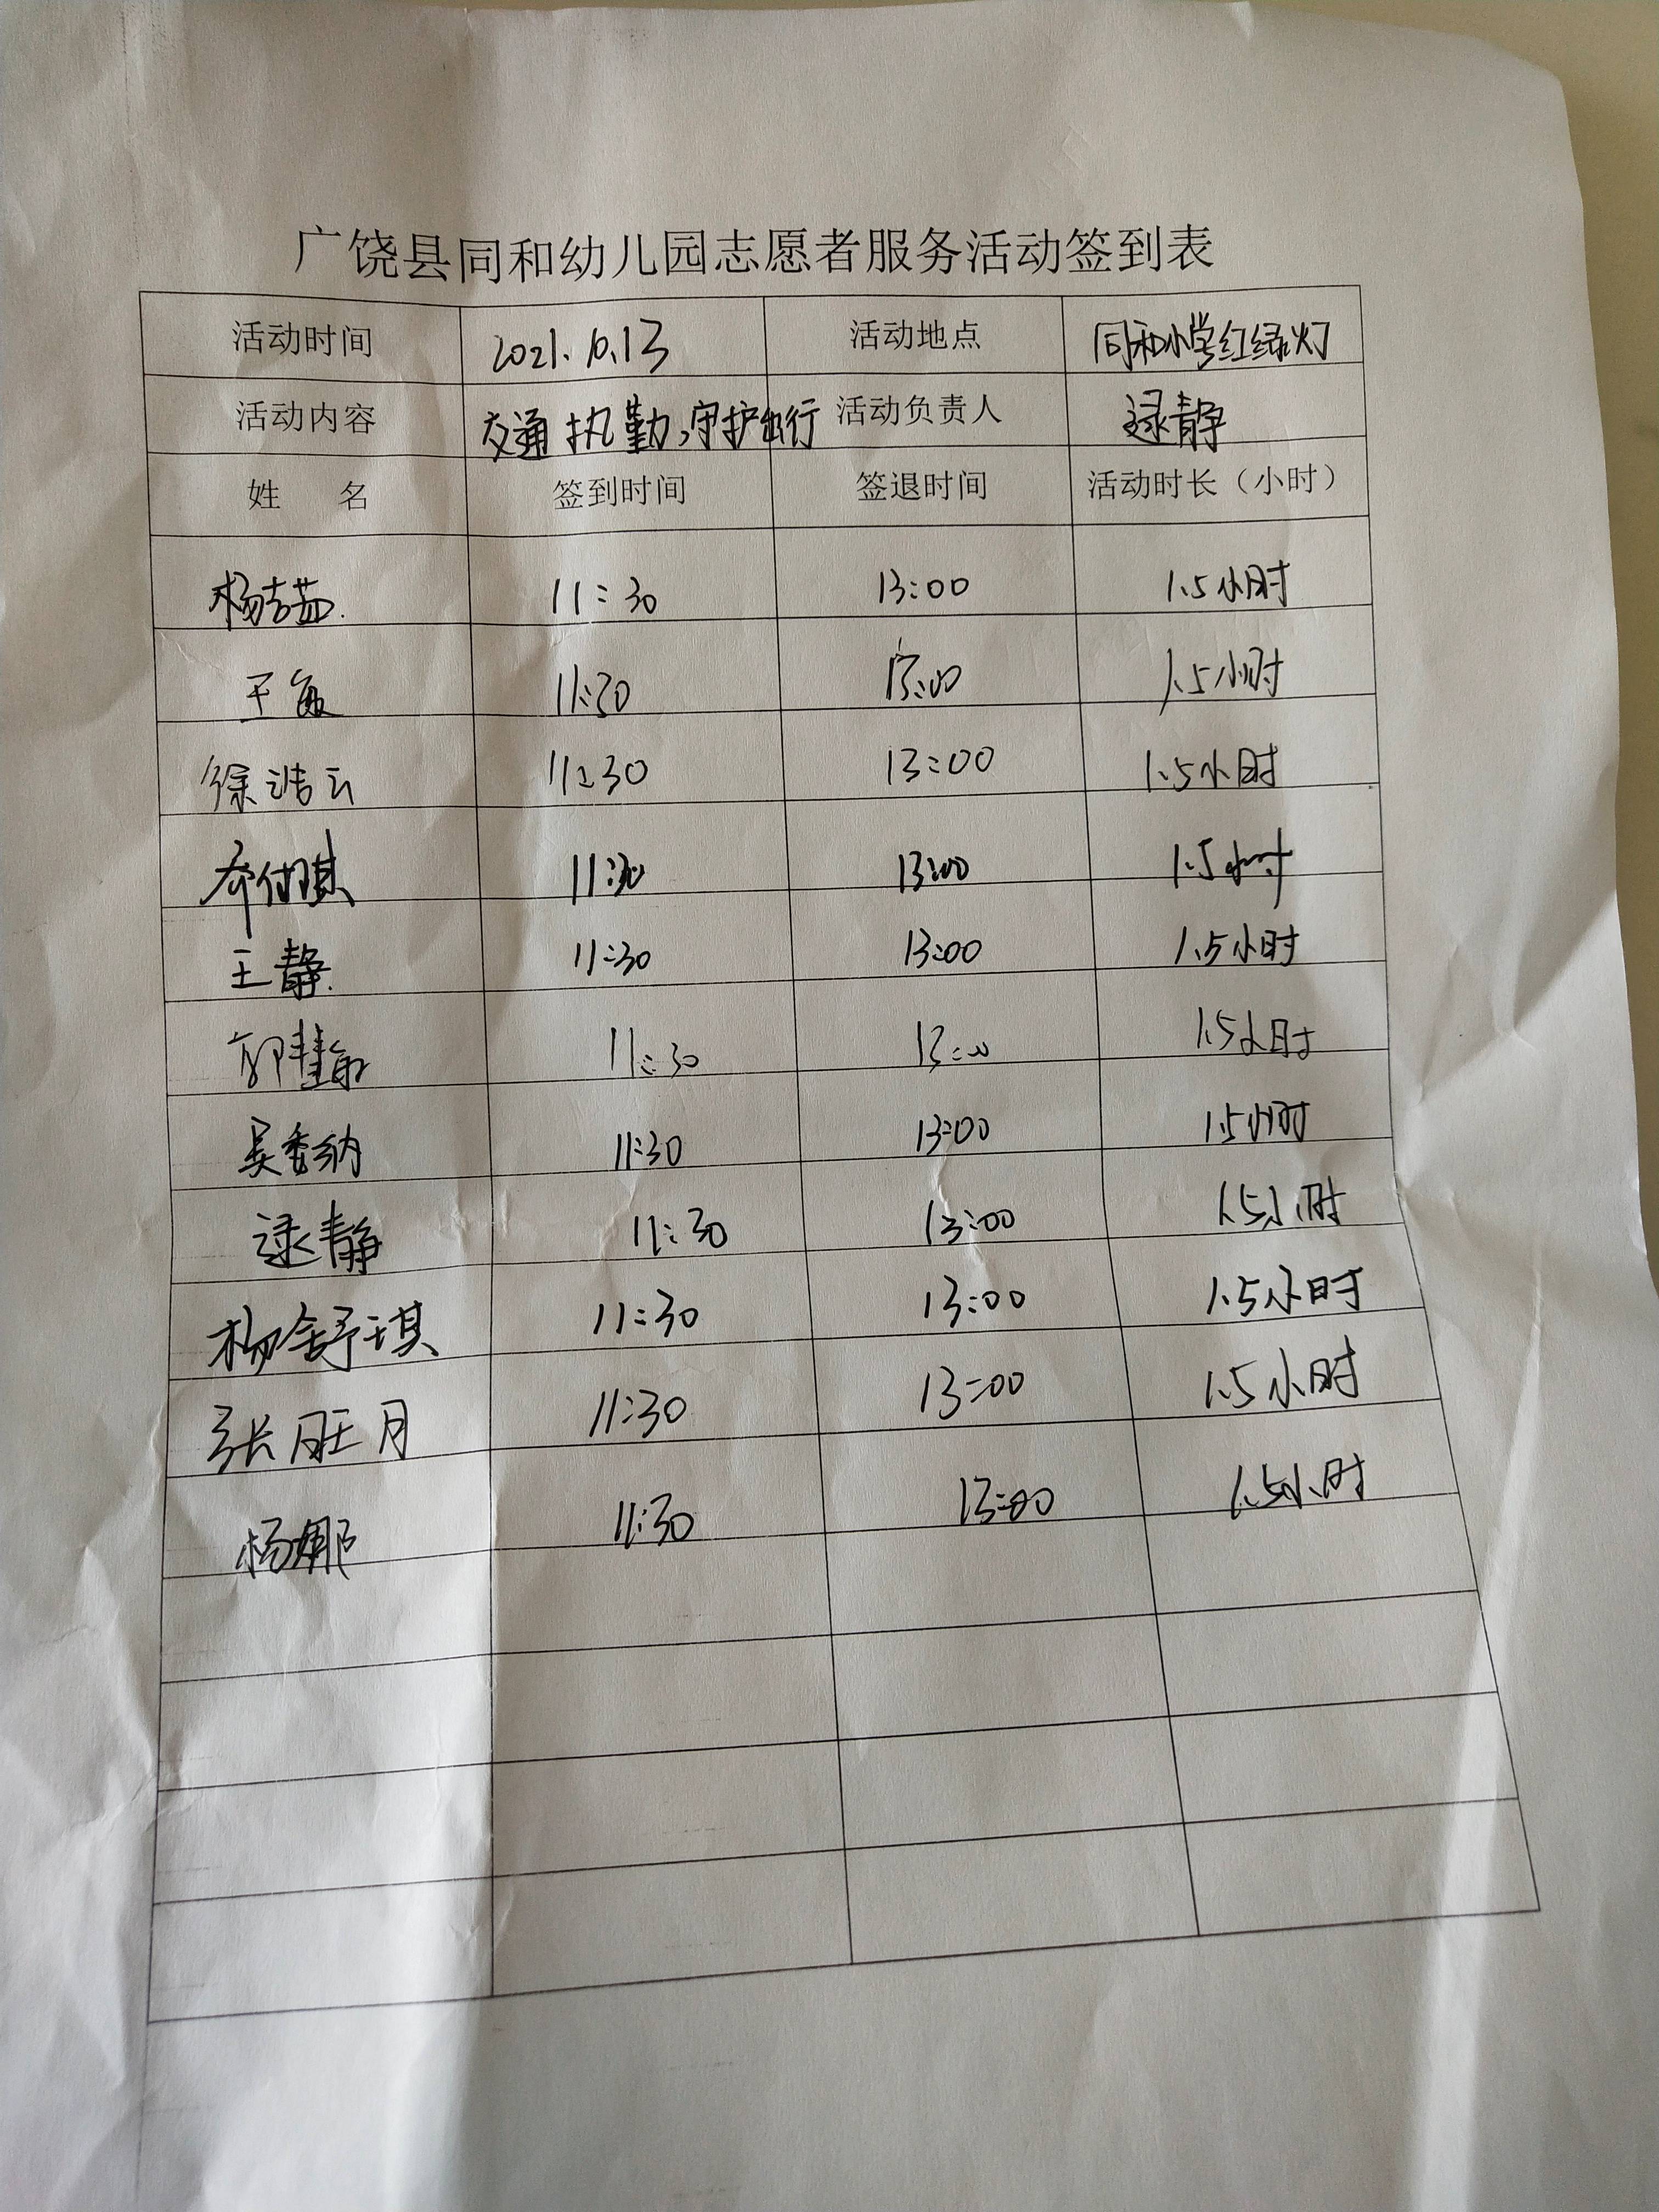 广饶县同和幼儿园志愿者服务活动签到表
活动时间 2021.10.13 活动地点 同和小学红绿灯
活动内容 交通执勤,守护出行 活动负责人 逯静
姓 名 签到时间 签退时间 活动时长（小时）
杨吉茹. 11:30 13:00 1.5小时
王敏 11:30 13:00 1.5小时
徐浩云 11:30 13:00 1.5小时
11:30 13:00 1.5小时
王静. 11:30 13:00 1.5小时
郭慧敏 11:30 13:00 1.5小时
吴香纳 11:30 13:00 1.5小时
逯静 11:30 13:00 1.5小时
杨舒琪 11:30 13:00 1.5小时
张旺月 11:30 13:00 1.5小时
杨娜 11:30 13:00 1.5小时